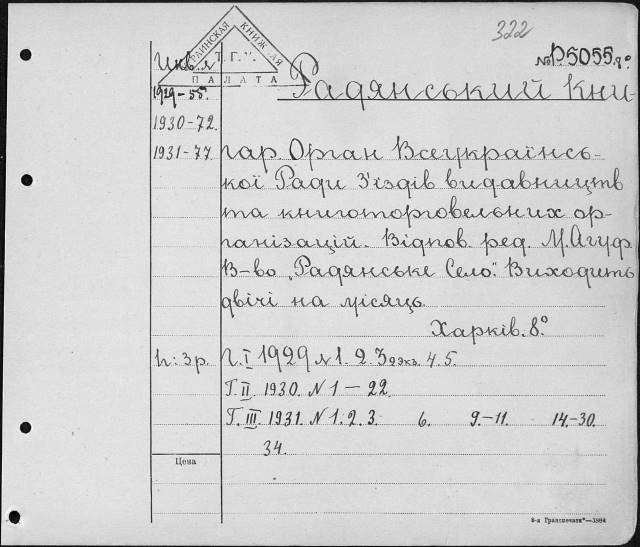 322
УКРАИНСКАЯ КНИЖНАЯ
Т.Г.У.
ПАЛАТА
№ Р5055 8°
1929-55.
Радянський кни-
1930-72.
1931-77. гар. Орган Всеукраїнсь-
кої Ради З'їздів видавництв
та книготорговельних ор-
ганізацій. Відпов. ред. М. Агуф.
В-во „Радянське Село". Виходить
двічі на місяць.
Харків. 8°
Ц: 3р. Г. I 1929 № 1. 2. 3 2 экз. 4. 5.
Г. II 1930. № 1 — 22.
Г. III 1931. № 1. 2. 3. 6. 9.-11. 14-30.
34.
Цена